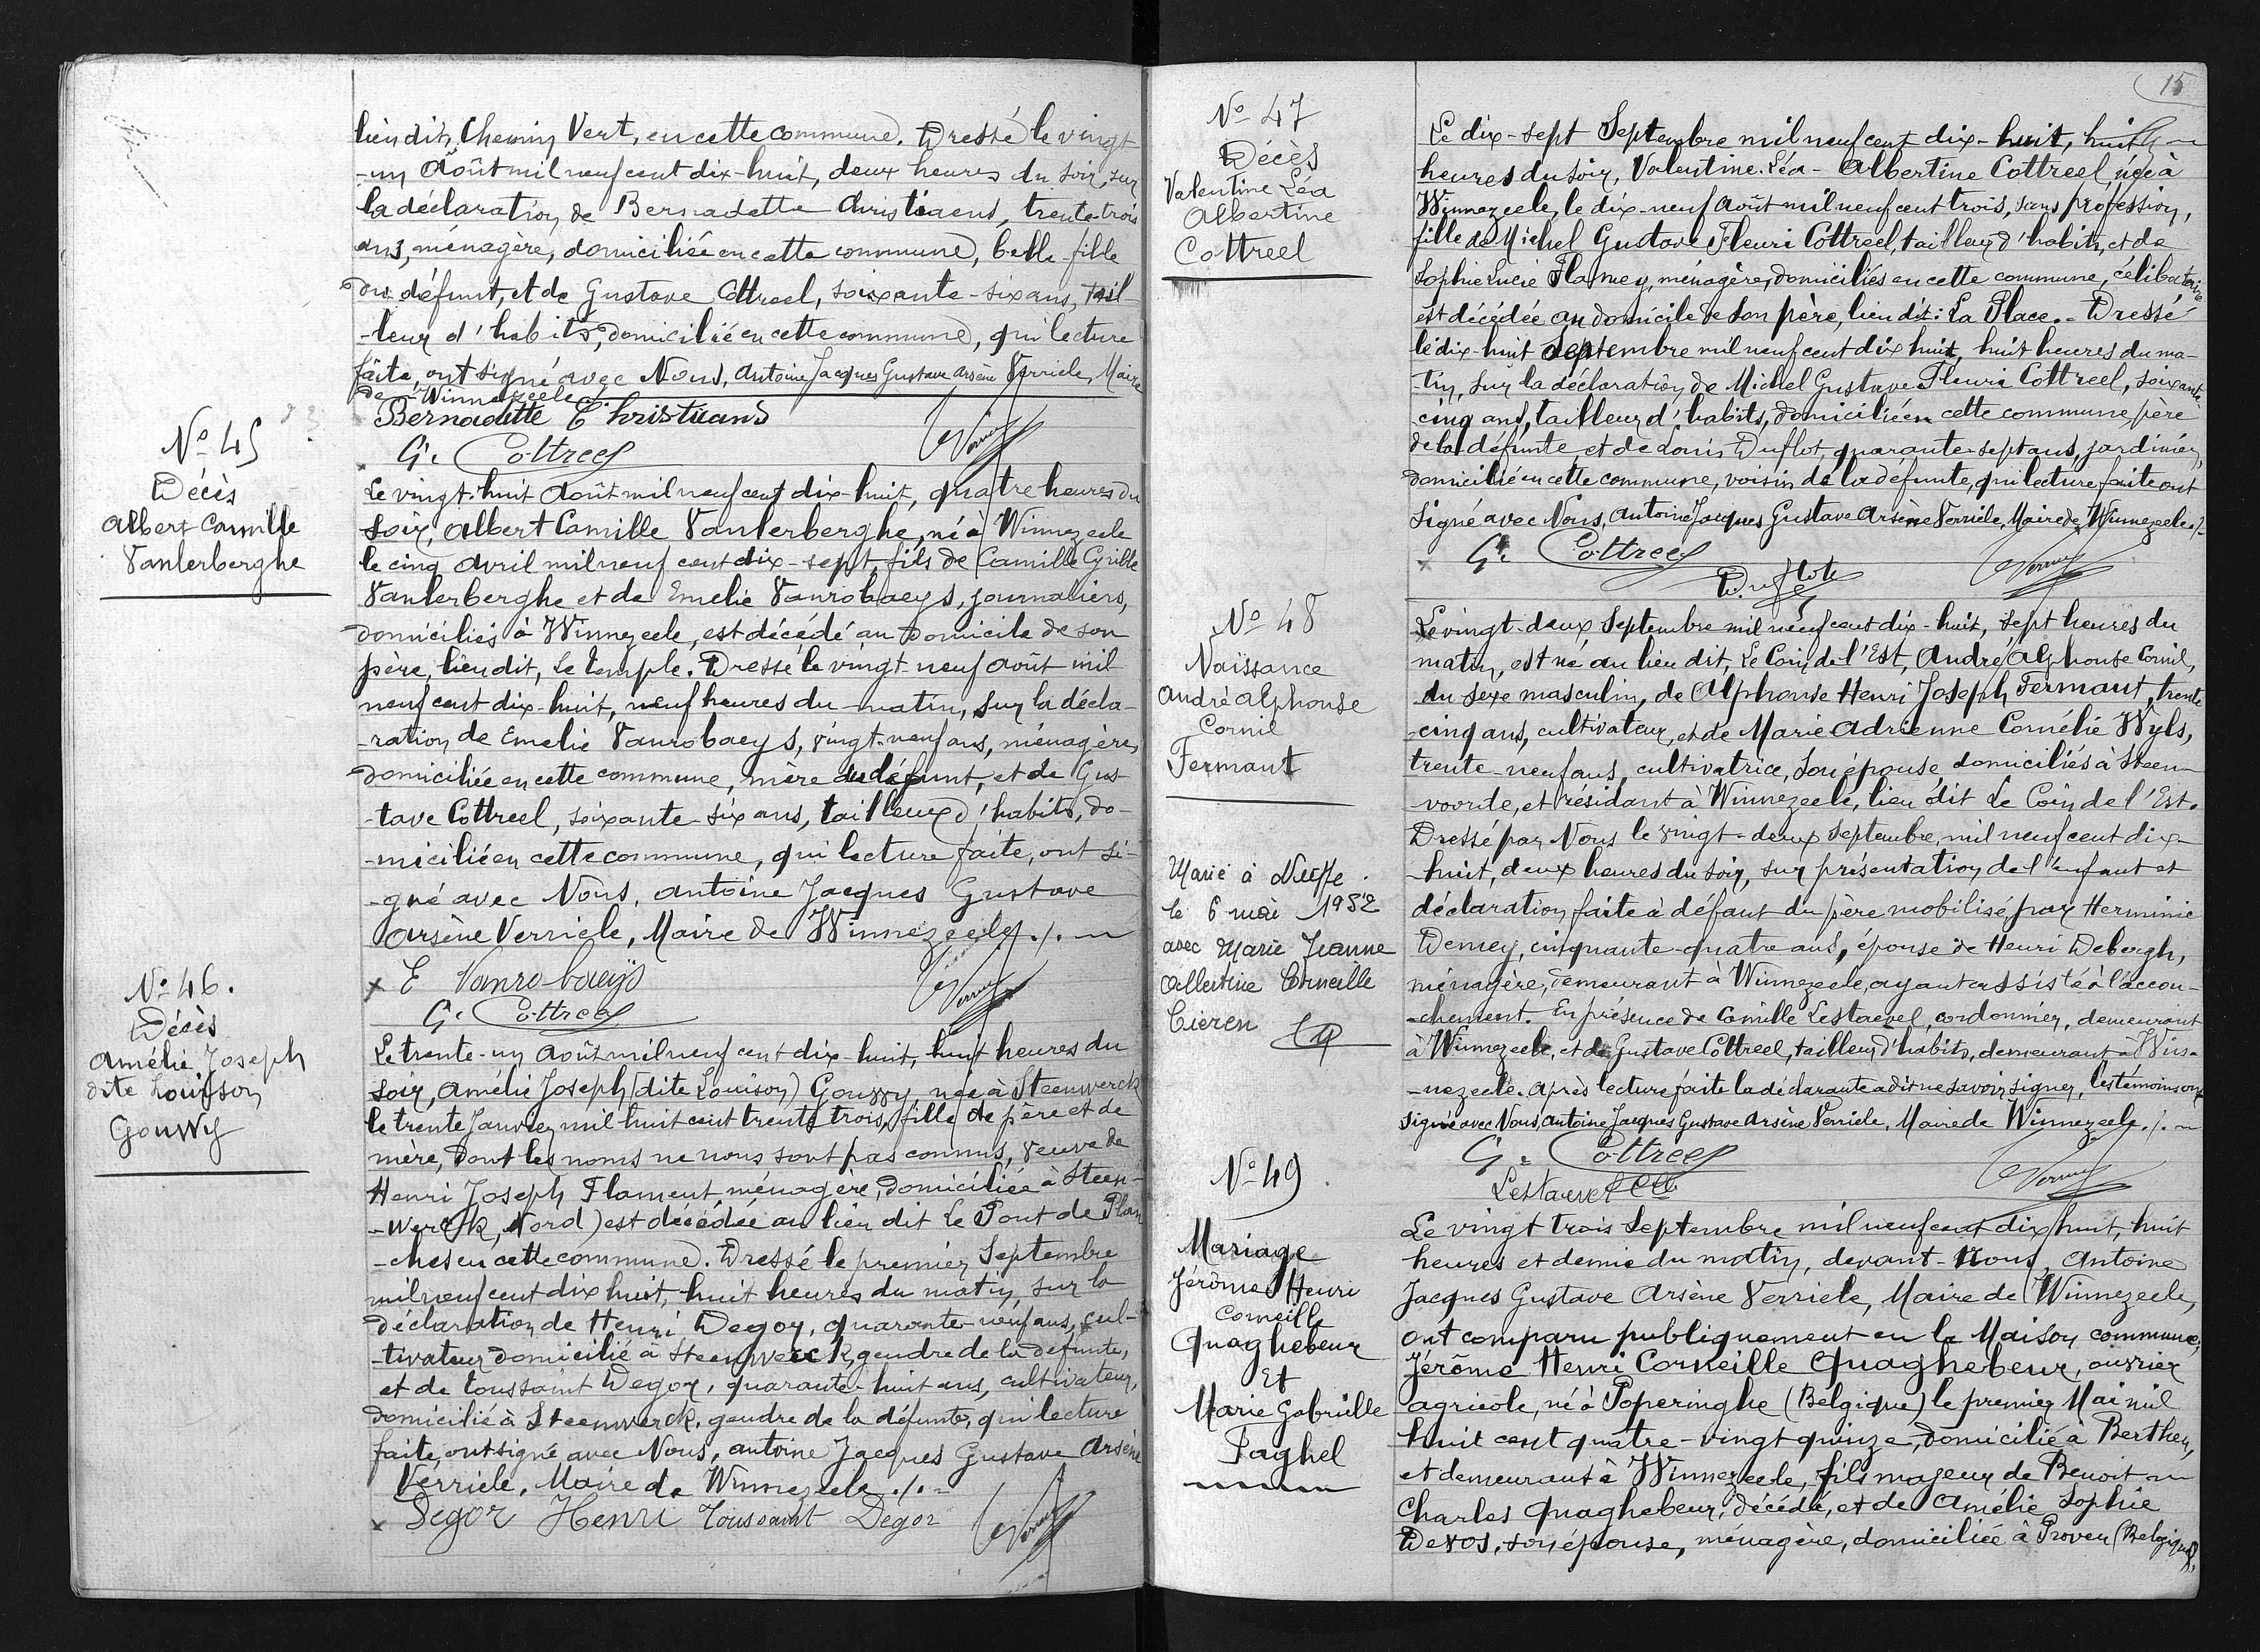 lieu dit, Chemin Vert, en cette commune. Dressé le vingt-
-un Août mil neuf cent dix-huit, deux heures du soir, sur
la déclaration de Bernadette Christiaens, trente-trois
ans, ménagère, domiciliée en cette commune, belle-fille
du défunt, et de Gustave Cottreel, soixante-six ans, tail-
-leur d'habits, domicilié en cette commune, qui lecture
faite, ont signé avec Nous, Antoine Jacques Gustave Arsène Verriele, Maire
de Winnezeele
Bernadette Christiaens
G. Cottreel
No 45
Décès
Albert Camille
Vanlerberghe
Le vingt-huit Août mil neuf cent dix-huit, quatre heures du
soir, Albert Camille Vanlerberghe, né à Winnezeele
le cinq Avril mil neuf cent dix-sept, fils de Camille Cyrille
Vanlerberghe et de Emelie Vanrobaeys, journaliers,
domiciliés à Winnezeele, est décédé au domicile de son
père, lieu dit, Le Temple. Dressé le vingt-neuf Août mil
neuf cent dix-huit, neuf heures du matin, sur la décla-
-ration de Emelie Vanrobaeys, vingt-neuf ans, ménagère,
domiciliée en cette commune, mère du défunt, et de Gus-
-tave Cottreel, soixante-six ans, tailleur d'habits, do-
-micilié en cette commune, qui lecture faite, ont si-
-gné avec Nous, Antoine Jacques Gustave
Arsène Verriele, Maire de Winnezeele ./.
x E Vanrobaeys
G. Cottreel
No 46.
Décès
Amélie Joseph
dite Louison
Gouwy
Le trente-un Août mil neuf cent dix-huit, huit heures du
soir, Amélie Joseph (dite Louison) Gouwy, née à Steenwerck
le trente Janvier mil huit cent trente trois, fille de père et de
mère, dont les noms ne nous sont pas connus, veuve de
Henri Joseph Flament, ménagère, domiciliée à Steen-
-werck, Nord) est décédée au lieu dit Le Pont de Plan
-ches en cette commune. Dressé le premier Septembre
mil neuf cent dix huit, huit heures du matin, sur la
déclaration de Henri Degor, quarante-neuf ans, cul-
-tivateur domicilié à Steenwerck, gendre de la défunte,
et de Toussaint Degor, quarante-huit ans, cultivateur,
domicilié à Steenwerck, gendre de la défunte, qui lecture
faite, ont signé avec Nous, Antoine Jacques Gustave Arsène
Verriele, Maire de Winnezeele ./.
x Degor Henri Toussaint Degor
15
No 47
Décès
Valentine Léa
Albertine
Cottreel
Le dix-sept Septembre mil neuf cent dix-huit, huit
heures du soir, Valentine Léa-Albertine Cottreel, née à
Winnezeele, le dix-neuf Août mil neuf cent trois, sans profession,
fille de Michel Gustave Fleuri Cottreel, tailleur d'habits, et de
Sophie Lucie Flamey, ménagère, domiciliés en cette commune, célibataire
est décédée au domicile de son père, lieu dit: La Place. - Dressé
le dix-huit Septembre mil neuf cent dix huit, huit heures du ma-
-tin, sur la déclaration de Michel Gustave Fleuri Cottreel, soixante
cinq ans, tailleur d'habits, domicilié en cette commune, père
de la défunte et de Louis Duflot, quarante-sept ans, jardinier,
domicilié en cette commune, voisin de la défunte, qui lecture faite ont
signé avec Nous, Antoine Jacques Gustave Arsène Verriele, Maire de Winnezeele ./.
x G. Cottreel
Duflot
No 48
Naissance
André Alphonse
Cornil
Fermaut
Le vingt-deux Septembre mil neuf cent dix-huit, sept heures du
matin, est né au lieu dit, Le Coin de l'Est, André Alphonse Cornil,
du sexe masculin, de Alphonse Henri Joseph Fermaut, trente
-cinq ans, cultivateur, et de Marie Adrienne Cornélie Wyls,
trente-neuf ans, cultivatrice, son épouse, domiciliés à Steen-
-voorde, et résidant à Winnezeele, lieu dit Le Coin de l'Est.
Dressé par Nous le vingt-deux Septembre, mil neuf cent dix-
-huit, deux heures du soir, sur présentation de l'enfant et
déclaration faite à défaut du père mobilisé par Herminie
Demey, cinquante-quatre ans, épouse de Henri Debergh,
ménagère, demeurant à Winnezeele, ayant assisté à l'accou-
-chement. En présence de Camille Lestaevel, cordonnier, demeurant
à Winnezeele, et de Gustave Cottreel, tailleur d'habits, demeurant à Win-
-nezeele. Après lecture faite la déclarante a dit ne savoir signer, les témoins ont
signé avec Nous, Antoine Jacques Gustave Arsène Verriele, Maire de Winnezeele ./.
G. Cottreel
Lestaevel Clle
Marié à Nieppe
le 6 mai 1952
avec Marie Jeanne
Albertine Corneille
Cieren
No 49
Mariage
Jérôme Henri
Corneille
Quaghebeur
Et
Marie Gabrielle
Paghel
Le vingt trois Septembre mil neuf cent dix huit, huit
heures et demie du matin, devant-Nous, Antoine
Jacques Gustave Arsène Verriele, Maire de Winnezeele,
ont comparu publiquement en la Maison commune,
Jérôme Henri Corneille Quaghebeur, ouvrier
agricole, né à Poperinghe (Belgique) le premier Mai mil
huit cent quatre-vingt quinze, domicilié à Berthen,
et demeurant à Winnezeele, fils majeur de Benoit
Charles Quaghebeur, décédé, et de Amélie Sophie
Devos, son épouse, ménagère, domiciliée à Proven (Belgique),